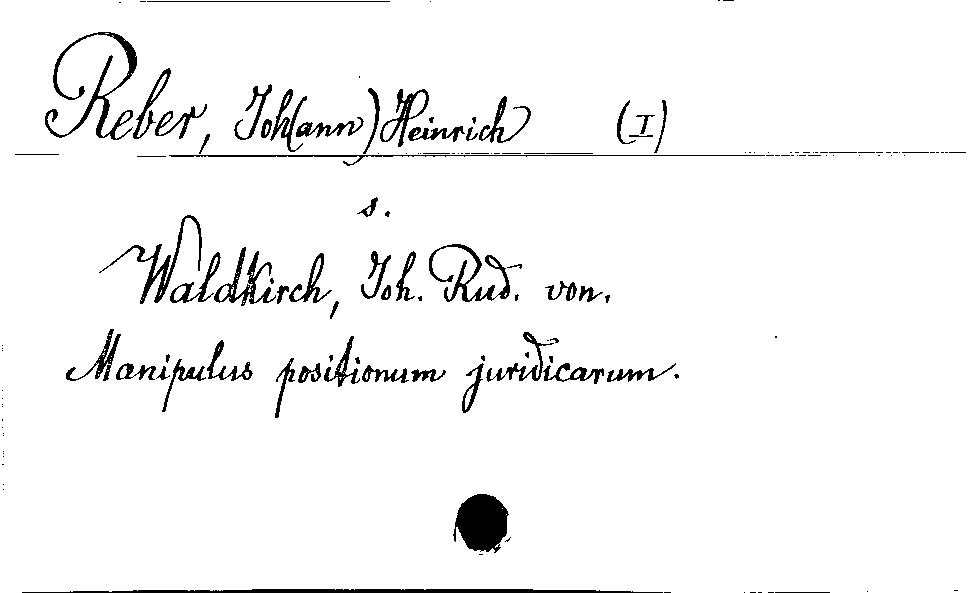 Reber, Joh(ann) Heinrich (I)
s.
Waldkirch, Joh. Rud. von.
Manipulus positionum juridicarum.